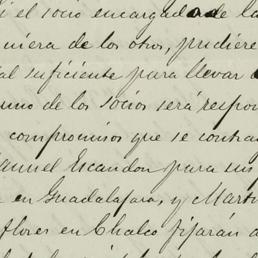 el socio encargado de la
niera de los otros, pudiere
al suficiente para llevar
uno de los socios será respon
compromisos que se contra
anuel Escandon para sus
en Guadalajara, y Marti
flores en Chalco fijarán a